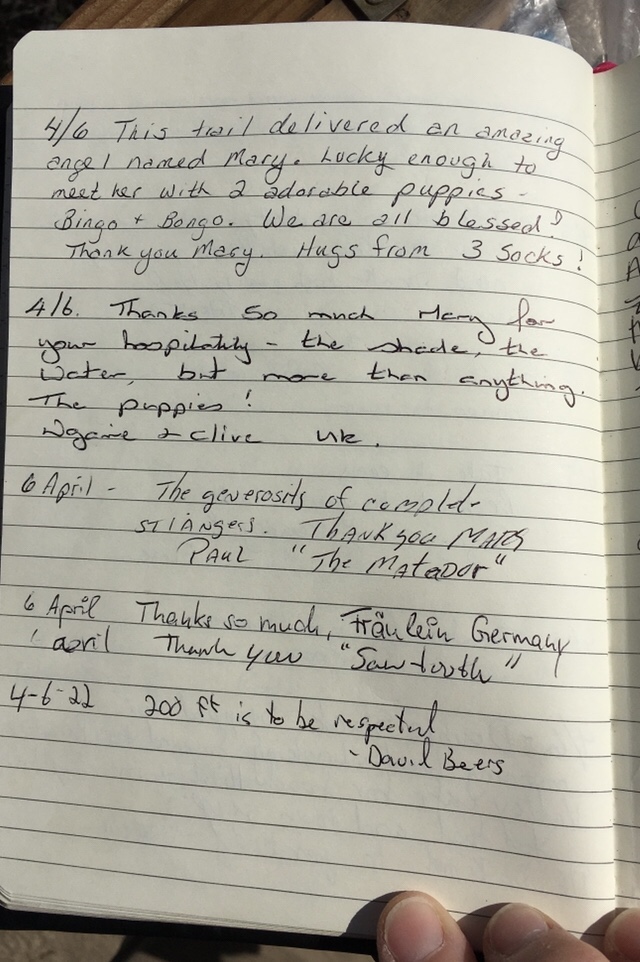 4/6 This trail delivered an amazing
angel named Mary. Lucky enough to
meet her with 2 adorable puppies -
Bingo + Bongo. We are all blessed!
Thank you Mary. Hugs from 3 Socks!
4/6. Thanks so much Mary for
your hospitality - the shade, the
water, but more than anything.
The puppies!
& Clive UK.
6 April - The generosity of complete
strangers. Thank you Mary
Paul "The Matador"
6 April Thanks so much, Fräulein Germany
april Thank you "Sawtooth"
4-6-22 200 ft is to be respected
- David Beers